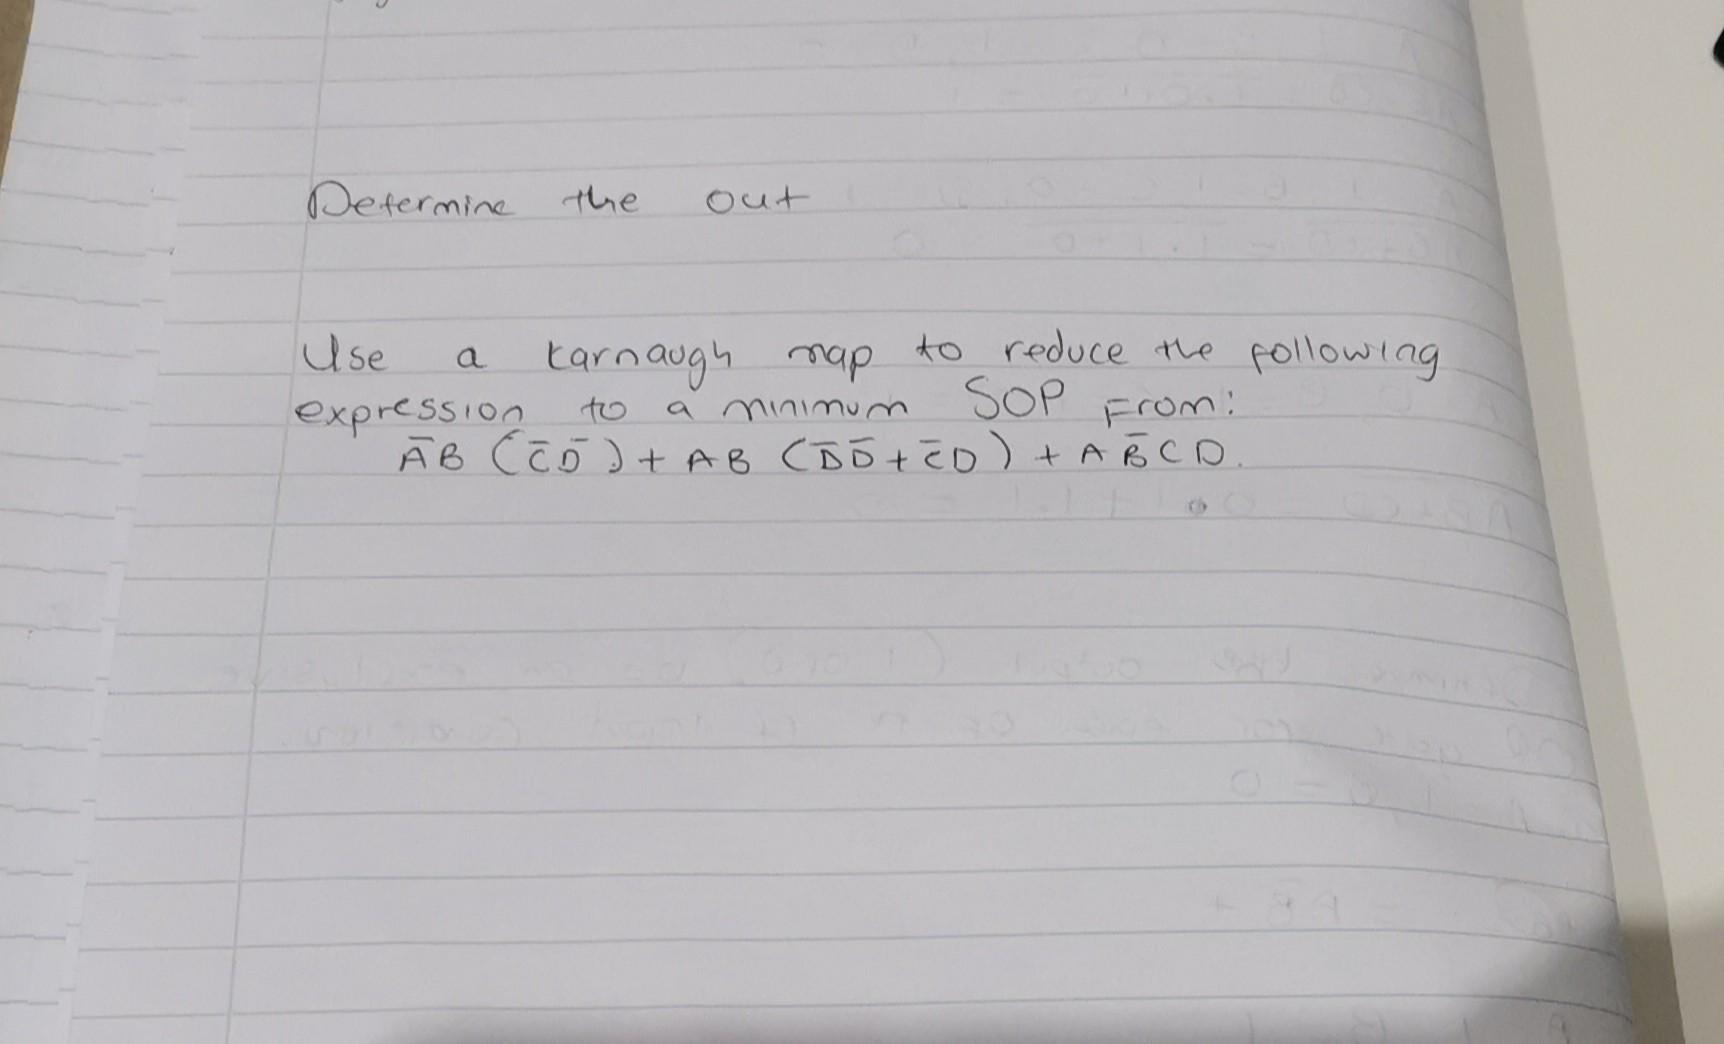 Determine the out
Use a karnaugh map to reduce the following
expression to a minimum SOP From:
A̅B (C̅D̅) + AB (D̅D̅ + C̅D) + AB̅CD.